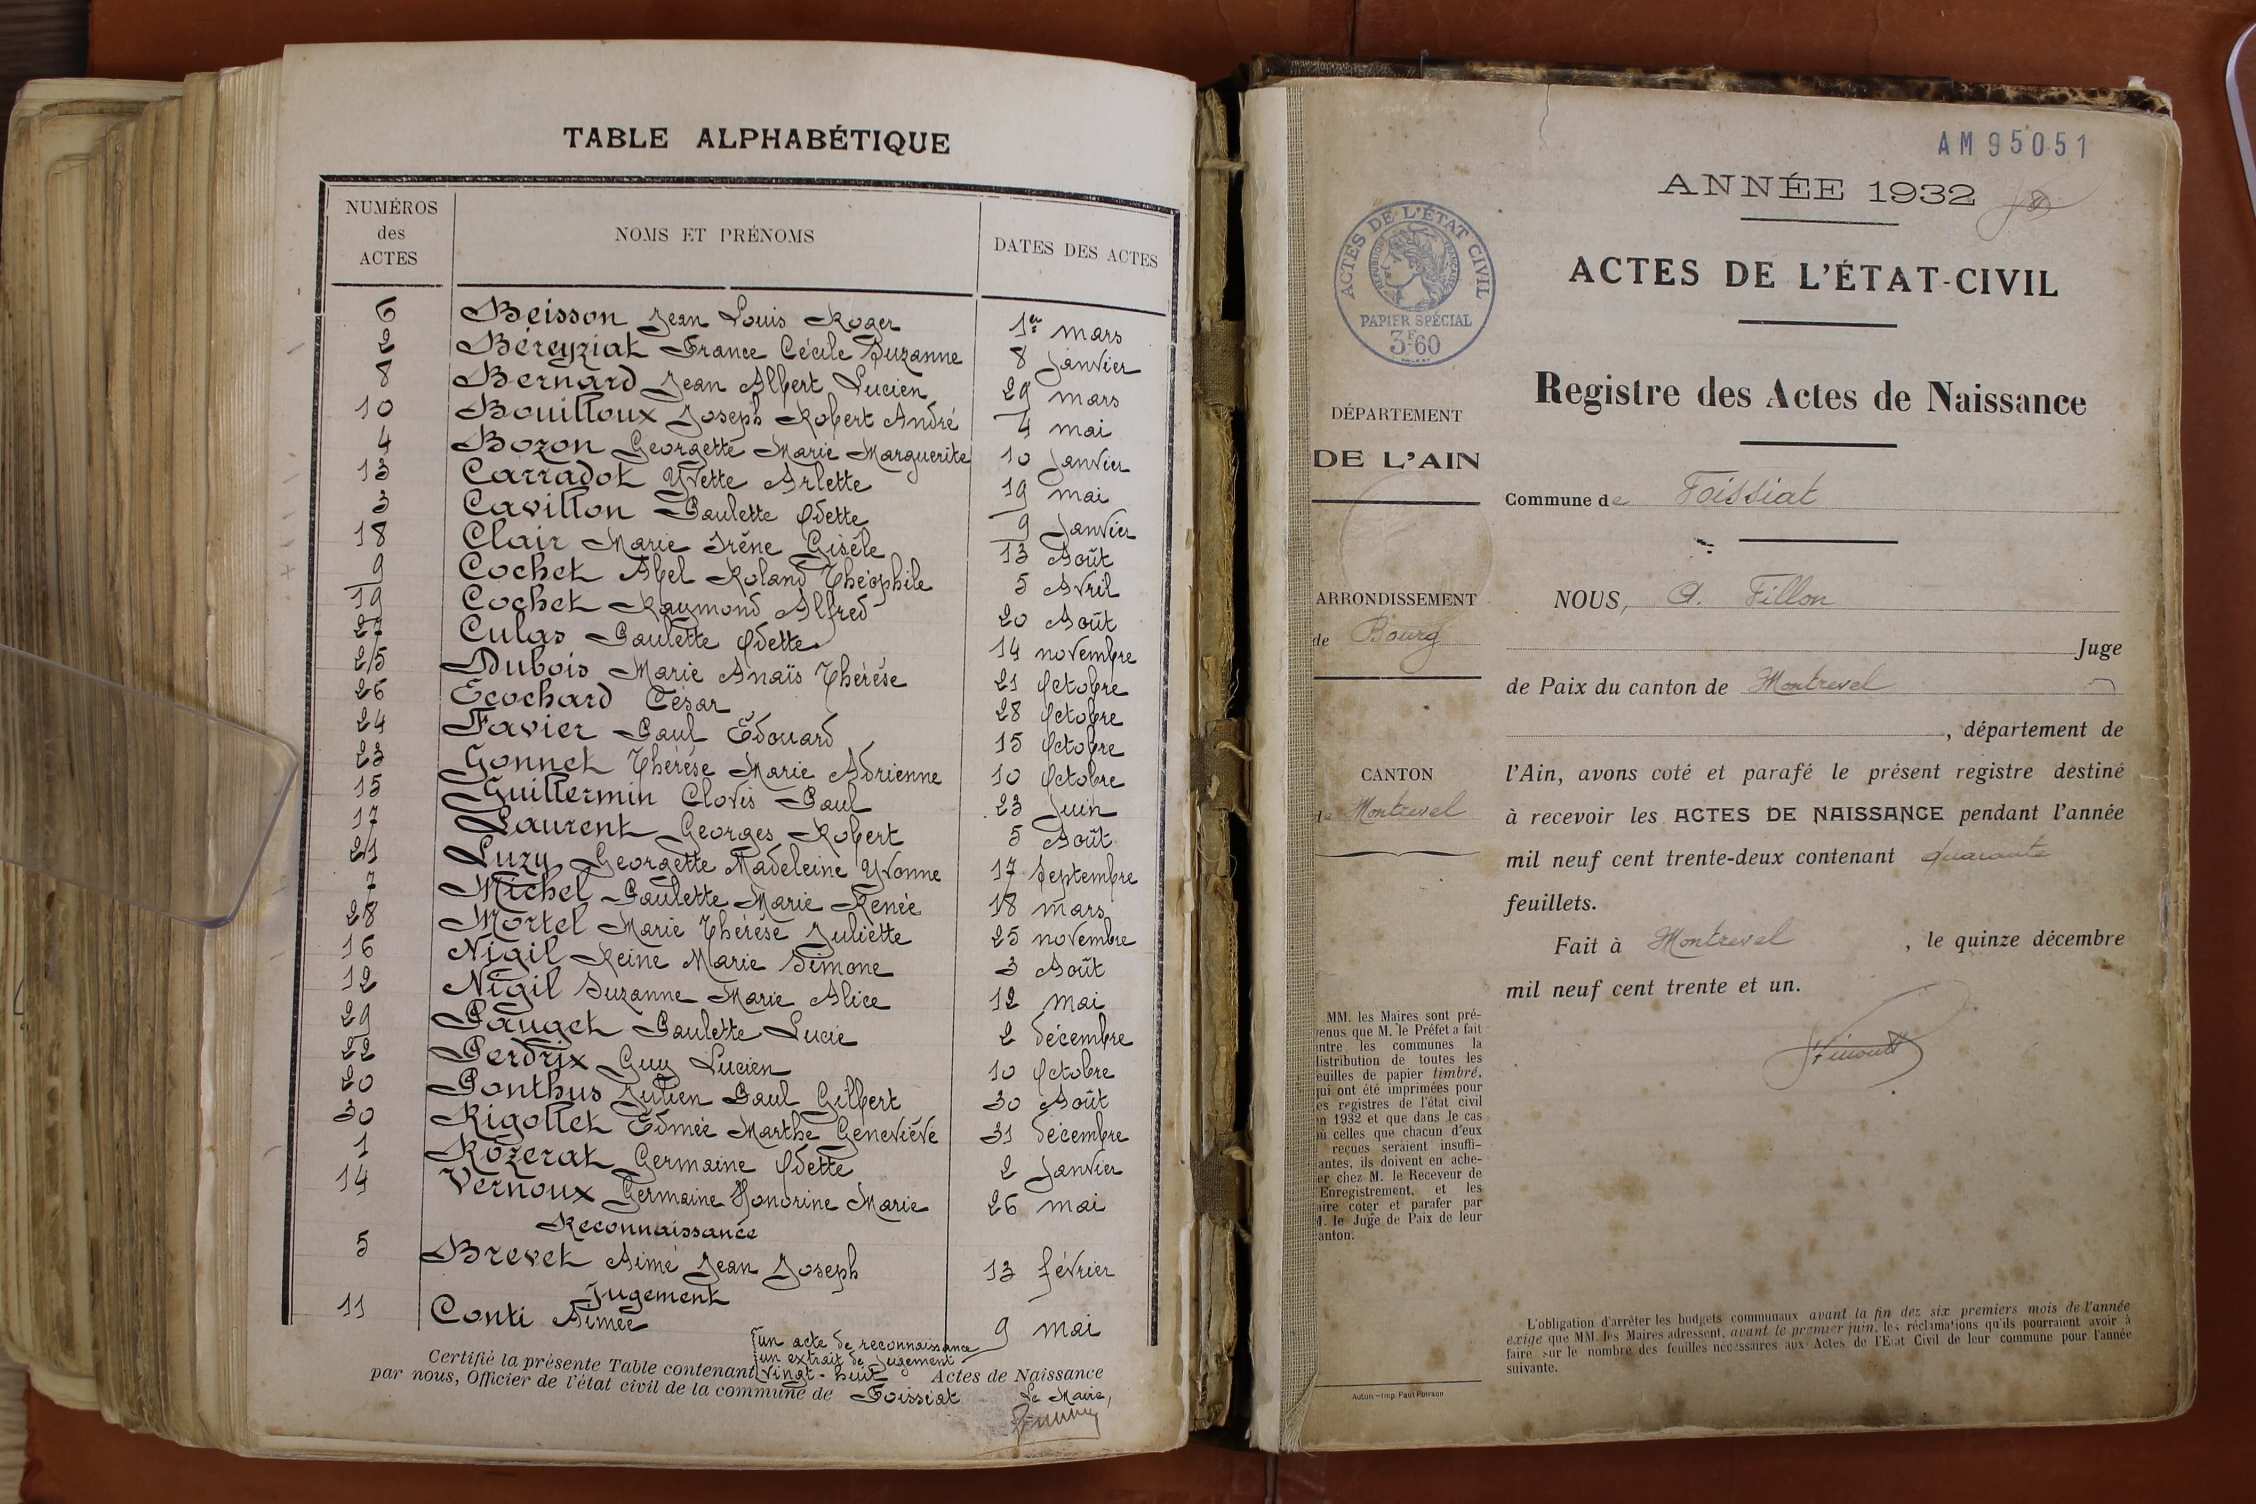 TABLE ALPHABÉTIQUE
NUMÉROS des ACTES NOMS ET PRÉNOMS DATES DES ACTES
6 Beisson Jean Louis Roger 1er mars
2 Béreyziat France Cécile Suzanne 8 Janvier
8 Bernard Jean Albert Lucien 29 mars
10 Bouilloux Joseph Robert André 4 mai
4 Bozon Georgette Marie Marguerite 10 Janvier
13 Carradot Yvette Arlette 19 mai
3 Cavillon Paulette Odette 9 Janvier
18 Clair Marie Irène Gisèle 13 Août
9 Cochet Abel Roland Théophile 5 Avril
19 Cochet Raymond Alfred 20 Août
27 Culas Paulette Odette 14 novembre
25 Dubois Marie Anaïs Thérèse 21 Octobre
26 Ecochard César 28 Octobre
24 Favier Paul Edouard 15 Octobre
23 Gonnet Thérèse Marie Adrienne 10 Octobre
15 Guillermin Clovis Paul 23 Juin
17 Laurent Georges Robert 5 Août
21 Luzy Georgette Madeleine Yvonne 17 Septembre
7 Michel Paulette Marie Renée 18 mars
28 Mortel Marie Thérèse Juliette 25 novembre
16 Nigil Reine Marie Simone 3 Août
12 Nigil Suzanne Marie Alice 12 mai
29 Pauget Paulette Lucie 2 décembre
22 Perdrix Guy Lucien 10 Octobre
20 Ponthus Julien Paul Gilbert 30 Août
30 Rigollet Edmée Marthe Geneviève 31 décembre
1 Rozerat Germaine Odette 2 Janvier
14 Vernoux Germaine Honorine Marie 26 mai
Reconnaissance
5 Brevet Aimé Jean Joseph 13 février
Jugement
11 Conti Aimée 9 mai
un acte de reconnaissance
un extrait de Jugement
Certifié la présente Table contenant vingt-huit Actes de Naissance
par nous, Officier de l'état civil de la commune de Foissiat
Le Maire,
AM 95051
ANNÉE 1932
ACTES DE L'ÉTAT CIVIL
RÉPUBLIQUE FRANÇAISE
PAPIER SPÉCIAL
3F60
ACTES DE L'ÉTAT-CIVIL
Registre des Actes de Naissance
DÉPARTEMENT
DE L'AIN
ARRONDISSEMENT
de Bourg
CANTON
de Montrevel
MM. les Maires sont pré-
venus que M. le Préfet a fait
entre les communes la
distribution de toutes les
feuilles de papier timbré,
qui ont été imprimées pour
les registres de l'état civil
en 1932 et que dans le cas
où celles que chacun d'eux
reçues seraient insuffi-
antes, ils doivent en ache-
er chez M. le Receveur de
Enregistrement, et les
aire coter et parafer par
M. le Juge de Paix de leur
canton.
Autun - Imp. Paul Poirson
Commune de Foissiat
NOUS, A. Fillon
Juge
de Paix du canton de Montrevel
, département de
l'Ain, avons coté et parafé le présent registre destiné
à recevoir les ACTES DE NAISSANCE pendant l'année
mil neuf cent trente-deux contenant quarante
feuillets.
Fait à Montrevel , le quinze décembre
mil neuf cent trente et un.
L'obligation d'arrêter les budgets communaux avant la fin des six premiers mois de l'année
exige que MM. les Maires adressent, avant le premier juin, les réclamations qu'ils pourraient avoir à
faire sur le nombre des feuilles nécessaires aux Actes de l'Etat Civil de leur commune pour l'année
suivante.